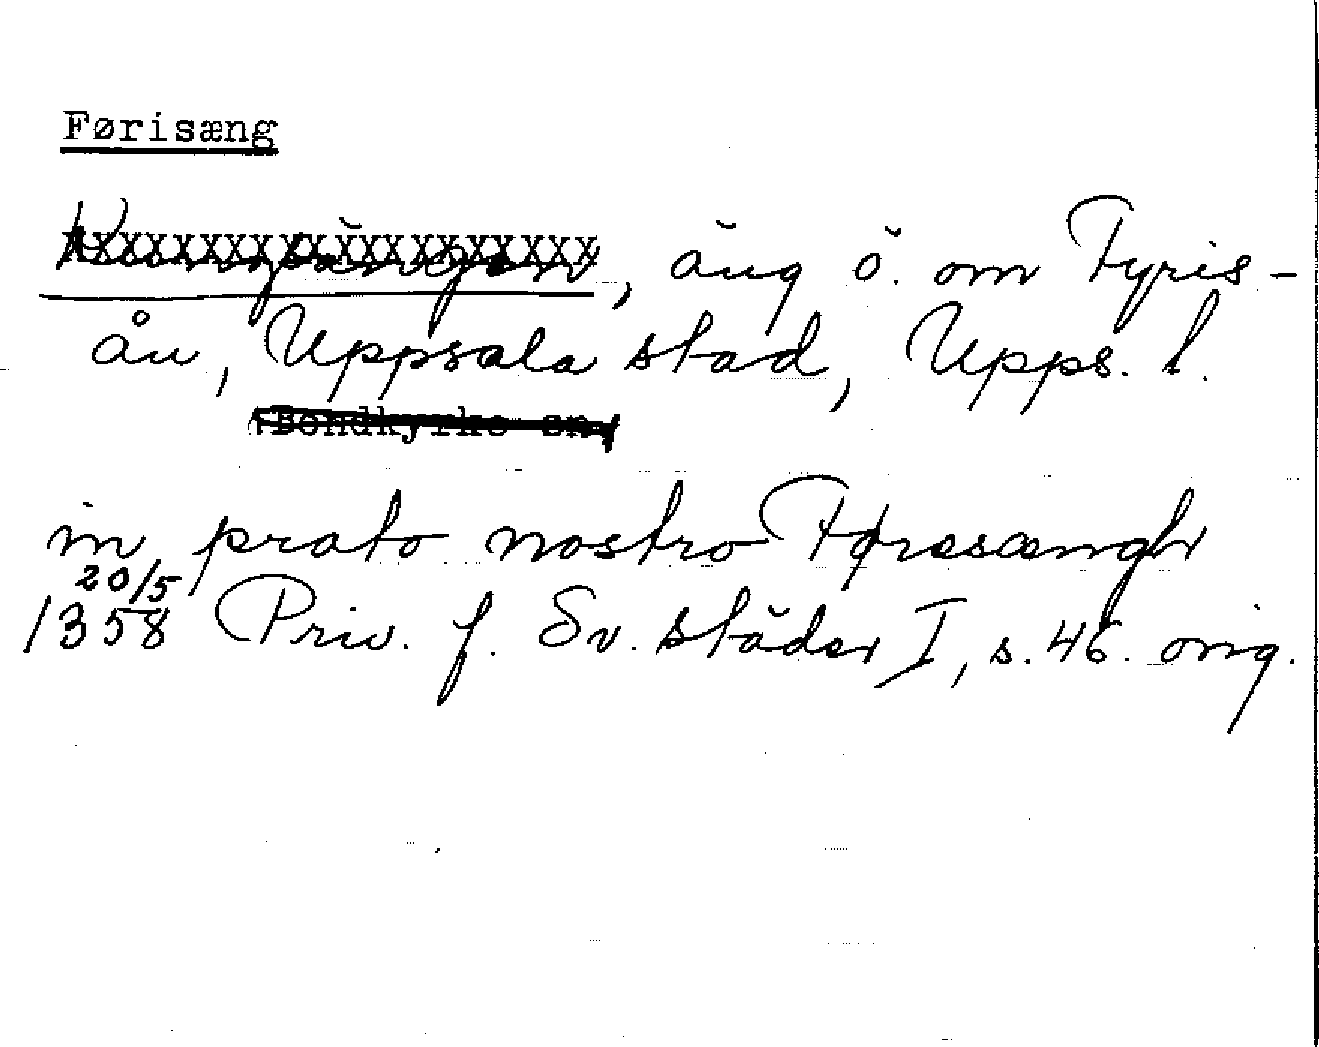 Førisæng
Kungsängen, äng ö. om Fyris-
ån, Uppsala stad, Upps. l.
(Bondkyrko sn)
in prato nostro Føresænghr
20/5
1358 Priv. f. Sv. städer I, s. 46. orig.